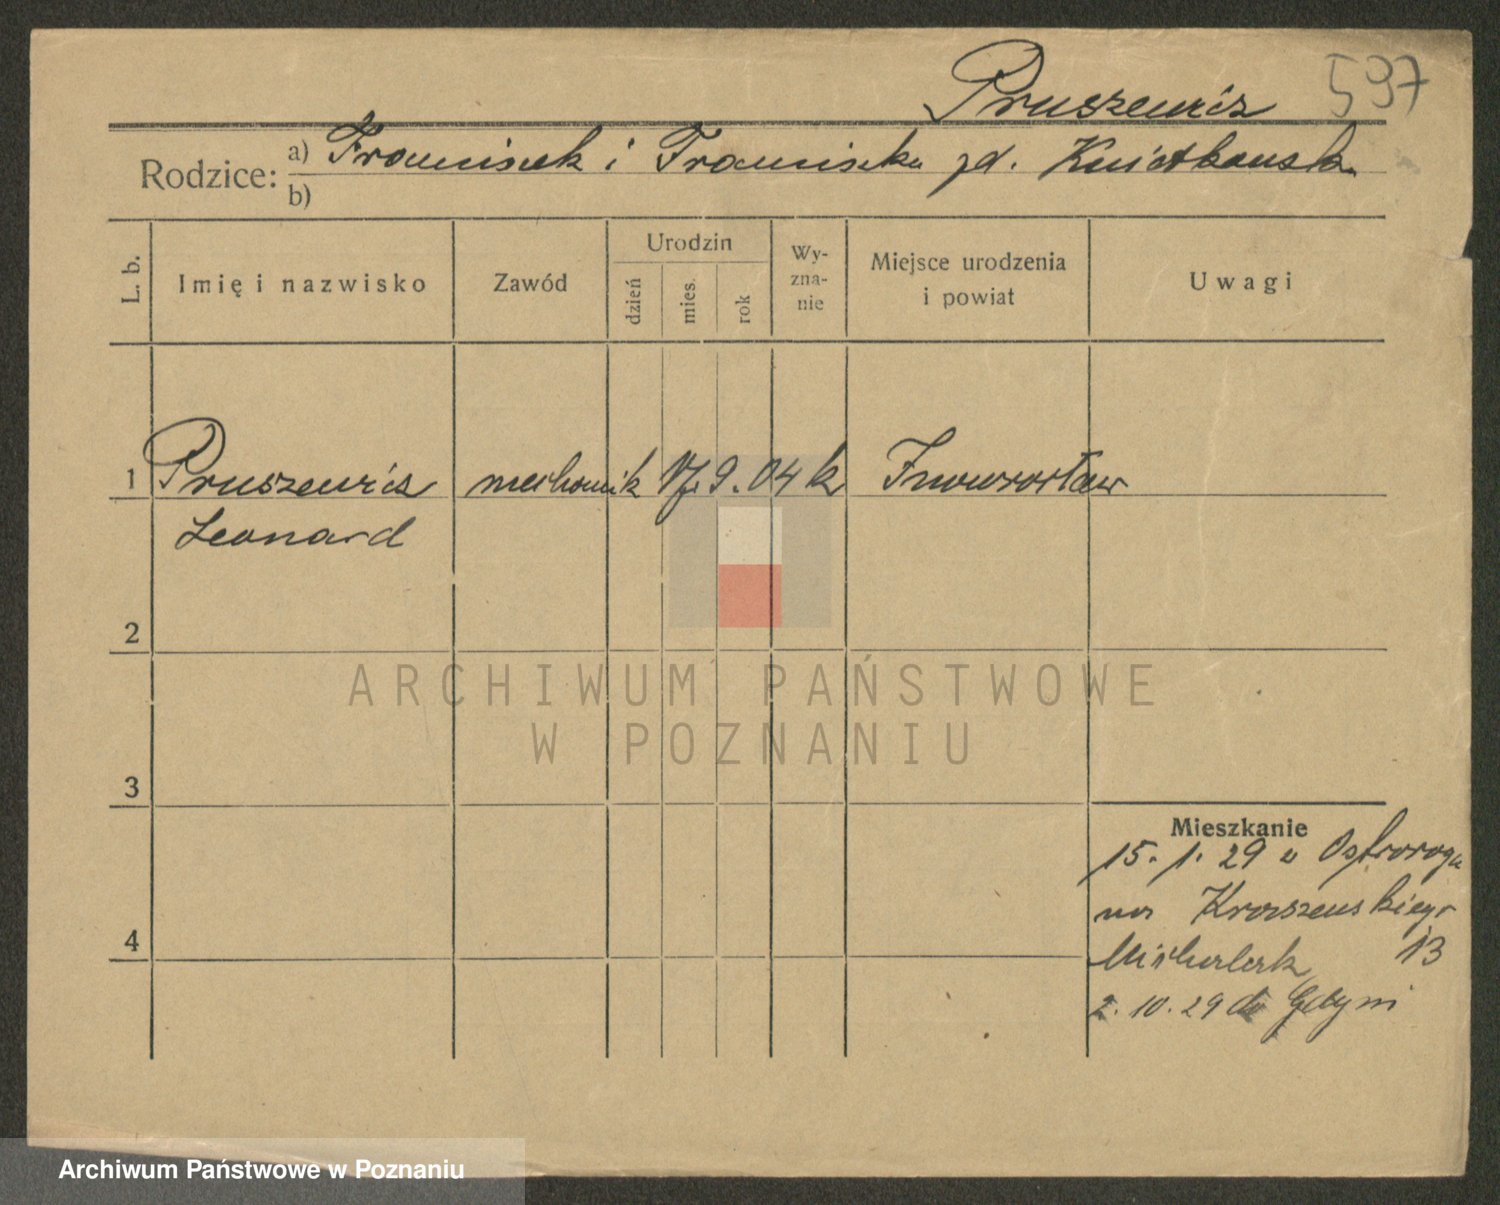 Pruszewicz 597
Rodzice: a) Franciszek i Franciszka zd. Kwiatkowska
b)
L. b. Imię i nazwisko Zawód Urodzin dzień mies. rok Wyznanie Miejsce urodzenia i powiat Uwagi
1 Pruszewicz mechanik 17. 9. 04 k Inowrocław
Leonard
2
ARCHIWUM PAŃSTWOWE
W POZNANIU
3
Mieszkanie
15. 1. 29 z Ostroroga
na Kraszewskiego
13
4
2. 10. 29 do Gdyni
Archiwum Państwowe w Poznaniu